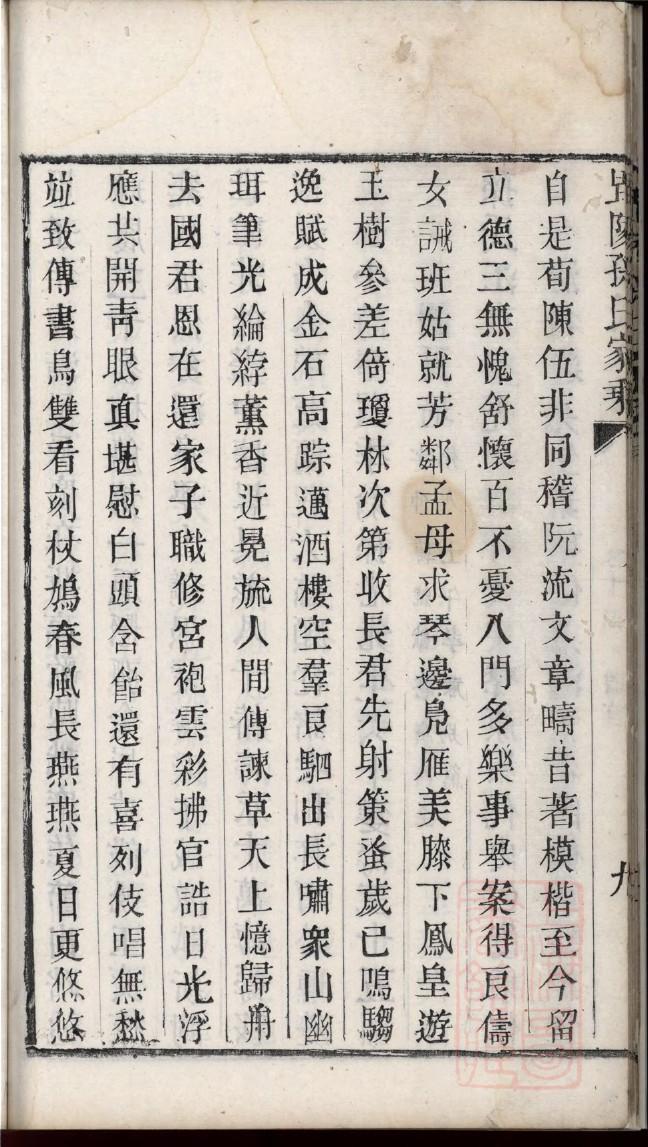 陽孫氏家乘
九
自是荀陳伍非同稽阮流文章疇昔著模楷至今留
立德三無愧舒懷百不憂入門多樂事舉案得良儔
女誡班姑就芳鄰孟母求琴邊鳧雁美膝下鳳皇遊
玉樹參差倚瓊林次第收長君先射策蚤歲已鳴騶
逸賦成金石高踪邁酒樓空羣良駟出長嘯衆山幽
珥筆光綸綍薰香近冕旒人間傳諫草天上憶歸舟
去國君恩在還家子職修宮袍雲彩拂官誥日光浮
應共開青眼真堪慰白頭含飴還有喜列伎唱無愁
竝致傳書鳥雙看刻杖鳩春風長燕燕夏日更悠悠